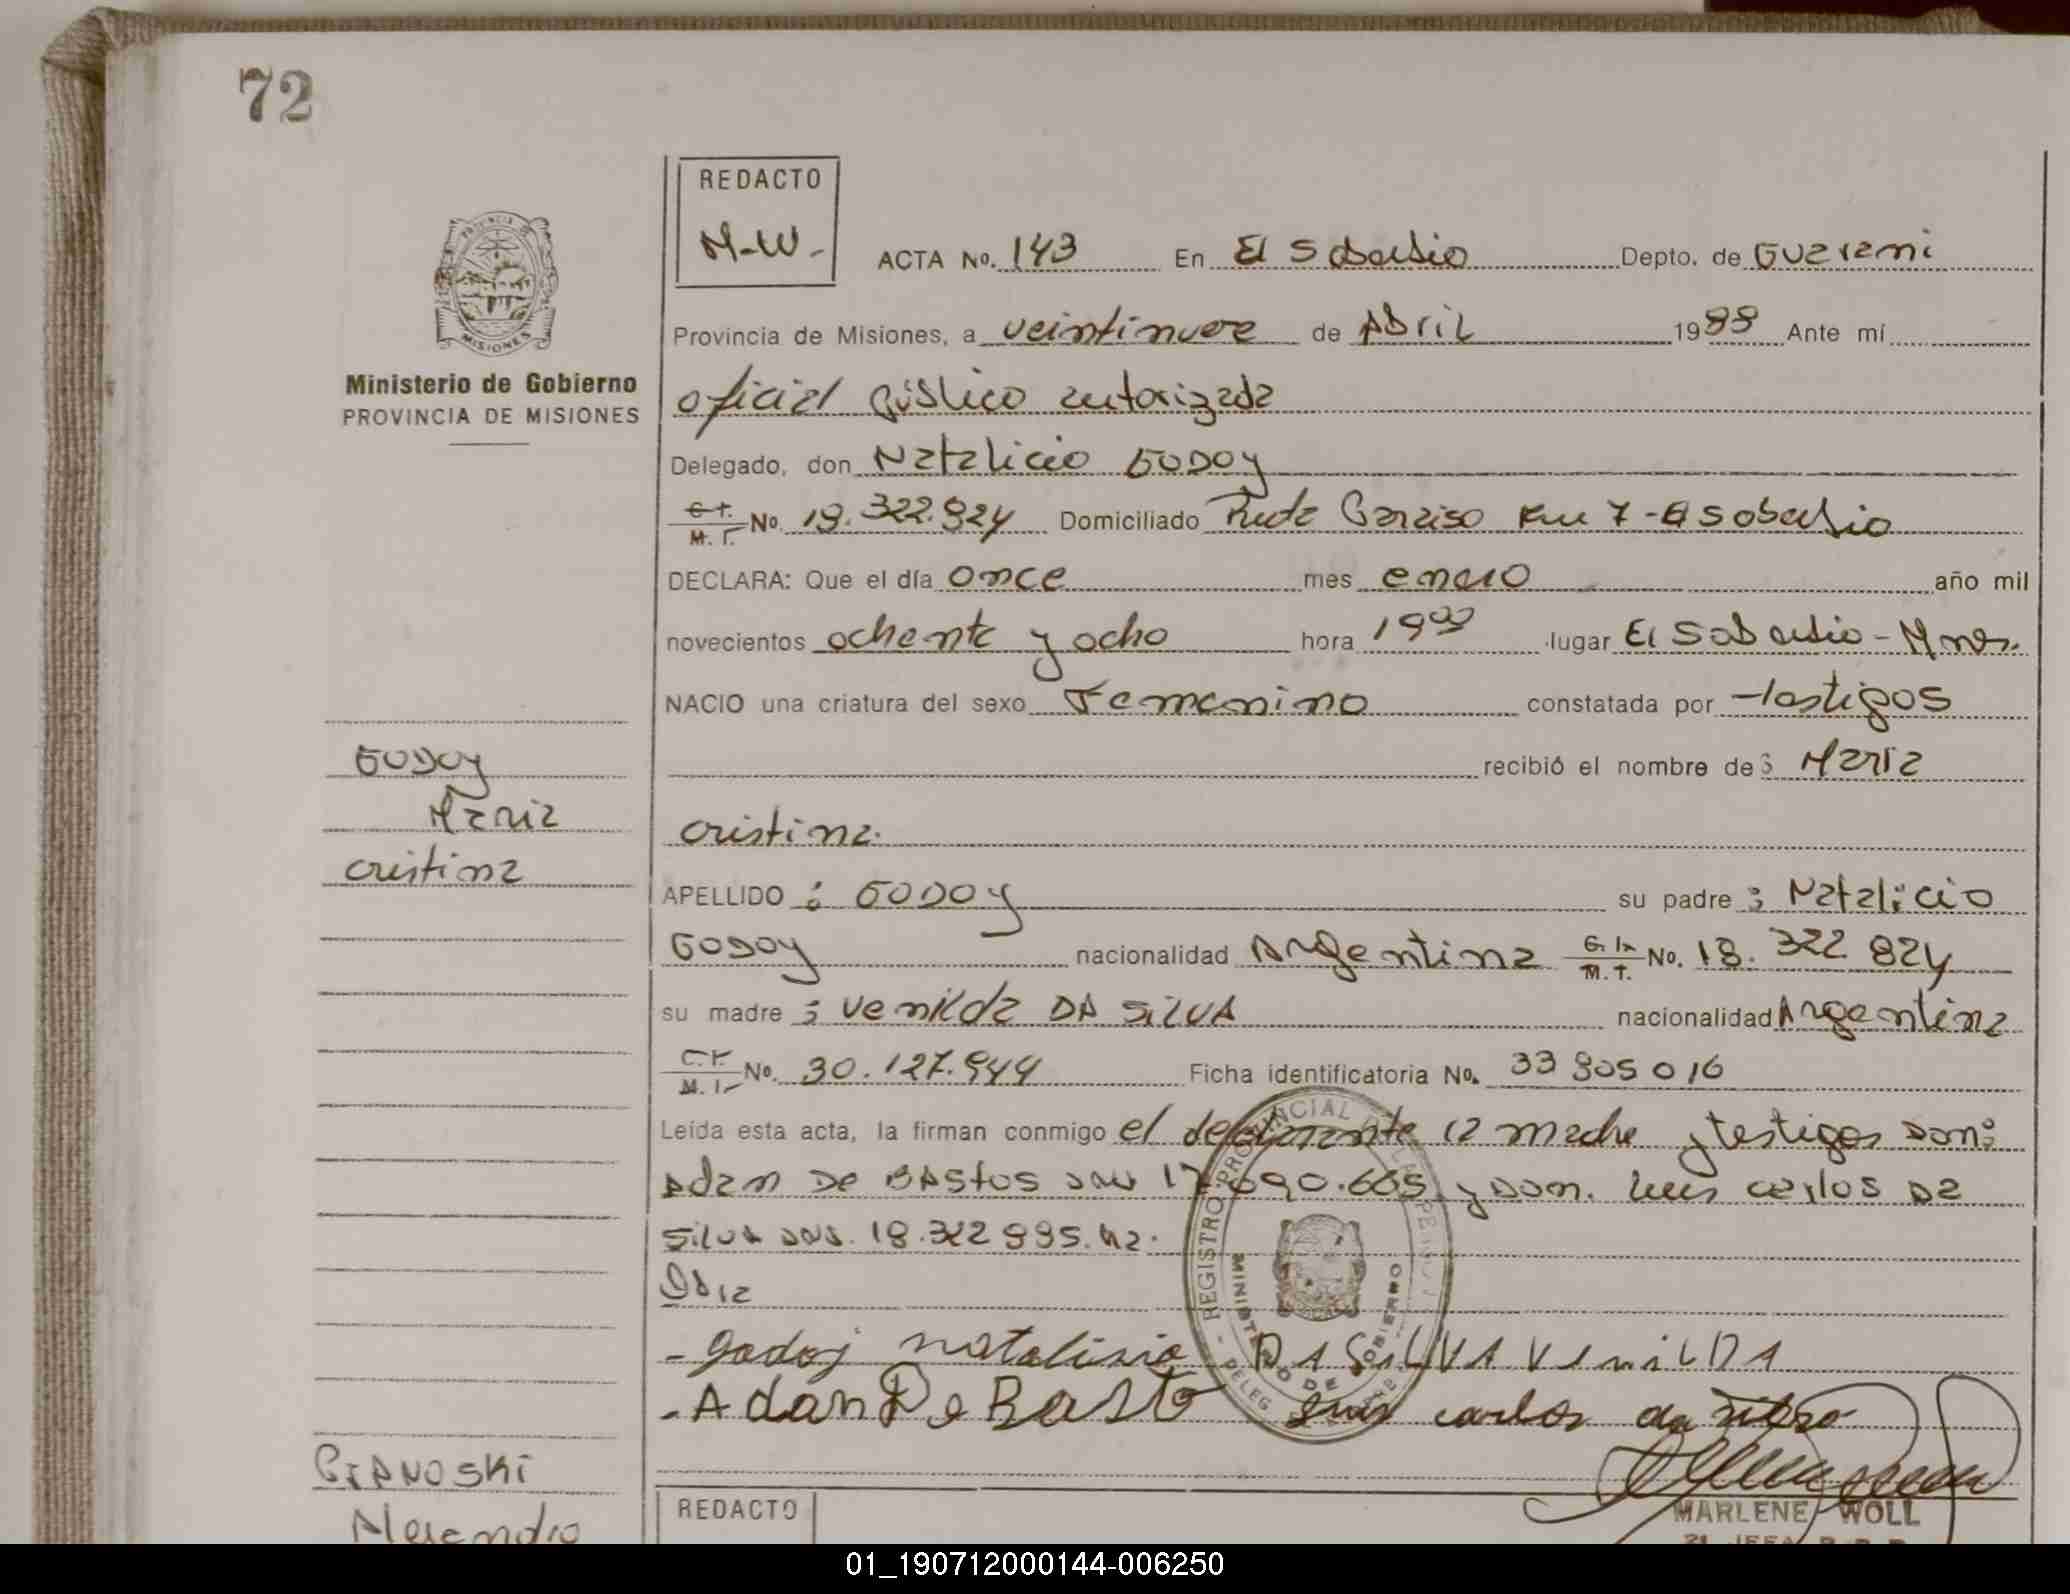 72
REDACTO
M-W.-
ACTA No. 143 En El Soberbio Depto. de Guarani
Provincia de Misiones, a veintinueve de Abril 1988 Ante mí
Ministerio de Gobierno
PROVINCIA DE MISIONES
oficial público autorizada
Delegado, don Natalicio GODOY
No. 18.322.824 Domiciliado Ruta Paraiso Km 7-El Soberbio
M. I.
DECLARA: Que el día once mes enero año mil
novecientos ochenta y ocho hora 19 00 lugar El Soberbio - Mnes.
NACIO una criatura del sexo Femenino constatada por testigos
recibió el nombre de: Maria
Cristina.
GODOY
Maria
Cristina
APELLIDO: GODOY su padre: Natalicio
GODOY nacionalidad Argentina M. I. No. 18.322 824
su madre: Venilda DA SILVA nacionalidad Argentina
M. I. No. 30.127.944 Ficha identificatoria No. 33 805 016
Leída esta acta, la firman conmigo el declarante la madre y testigos Don:
Adan De BASTOS DNI 17.090.665 y Don. Luis Carlos Da
Silva DNI. 18.322 995.
- godoy natalisio DA SiLVA VeniLDA
- Adan De Basto Luis carlos da
MARLENE WOLL
REGISTRO PROVINCIAL DE LAS PERSONAS
MINISTERIO DE GOBIERNO
REDACTO
01_190712000144-006250